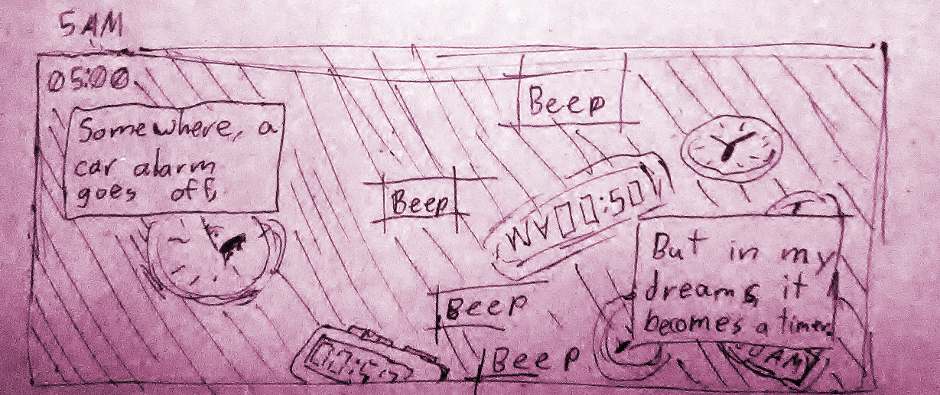 5AM
05:00
Somewhere, a
car alarm
goes off,
Beep
Beep
Beep
Beep
But in my
dreams, it
becomes a timer.